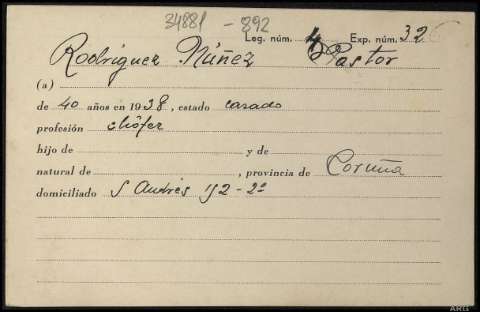 34881 - 892
Leg. núm. 4 Exp. núm. 326
Rodríguez Núñez Pastor
(a)
de 40 años en 1938, estado casado
profesión chófer
hijo de y de
natural de , provincia de Coruña
domiciliado S Andrés 152 - 2º
ARG